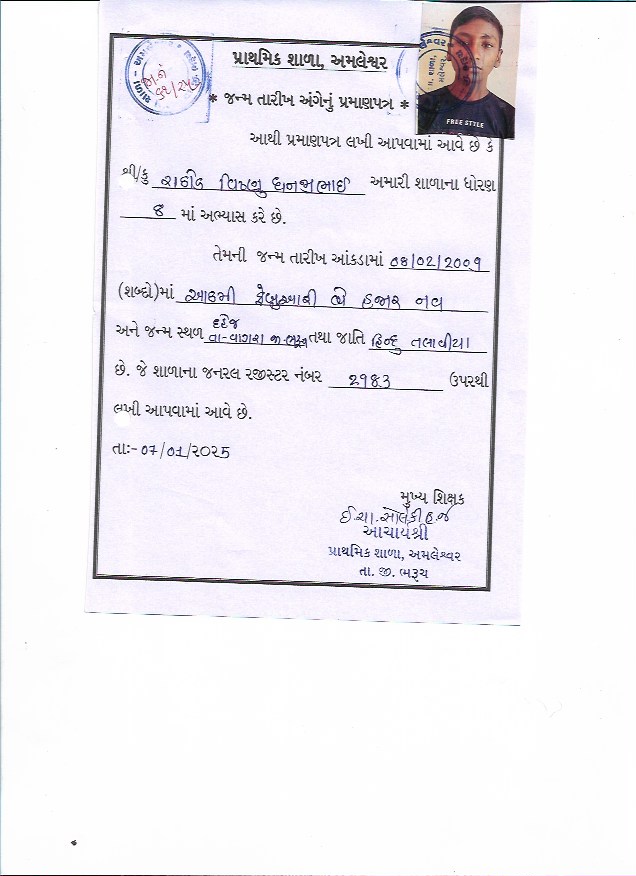 પ્રાથમિક શાળા, અમલેશ્વર
* જન્મ તારીખ અંગેનું પ્રમાણપત્ર *
FREE STYLE
આથી પ્રમાણપત્ર લખી આપવામાં આવે છે કે
શ્રી/કુ રાઠોડ વિષ્ણુ ધનજીભાઈ અમારી શાળાના ધોરણ
૪ માં અભ્યાસ કરે છે.
તેમની જન્મ તારીખ આંકડામાં 08/02/2009
(શબ્દો)માં આઠમી ફેબ્રુઆરી બે હજાર નવ
અને જન્મ સ્થળ દહેજ
તા-વાગરા જી-ભરૂચ તથા જાતિ હિન્દુ તલાવીયા
છે. જે શાળાના જનરલ રજીસ્ટર નંબર 2983 ઉપરથી
લખી આપવામાં આવે છે.
તાઃ-07/01/૨૦૨5
મુખ્ય શિક્ષક
ઈ.ચા.સોલંકી હ.જે
આચાર્યશ્રી
પ્રાથમિક શાળા, અમલેશ્વર
તા. જી. ભરૂચ